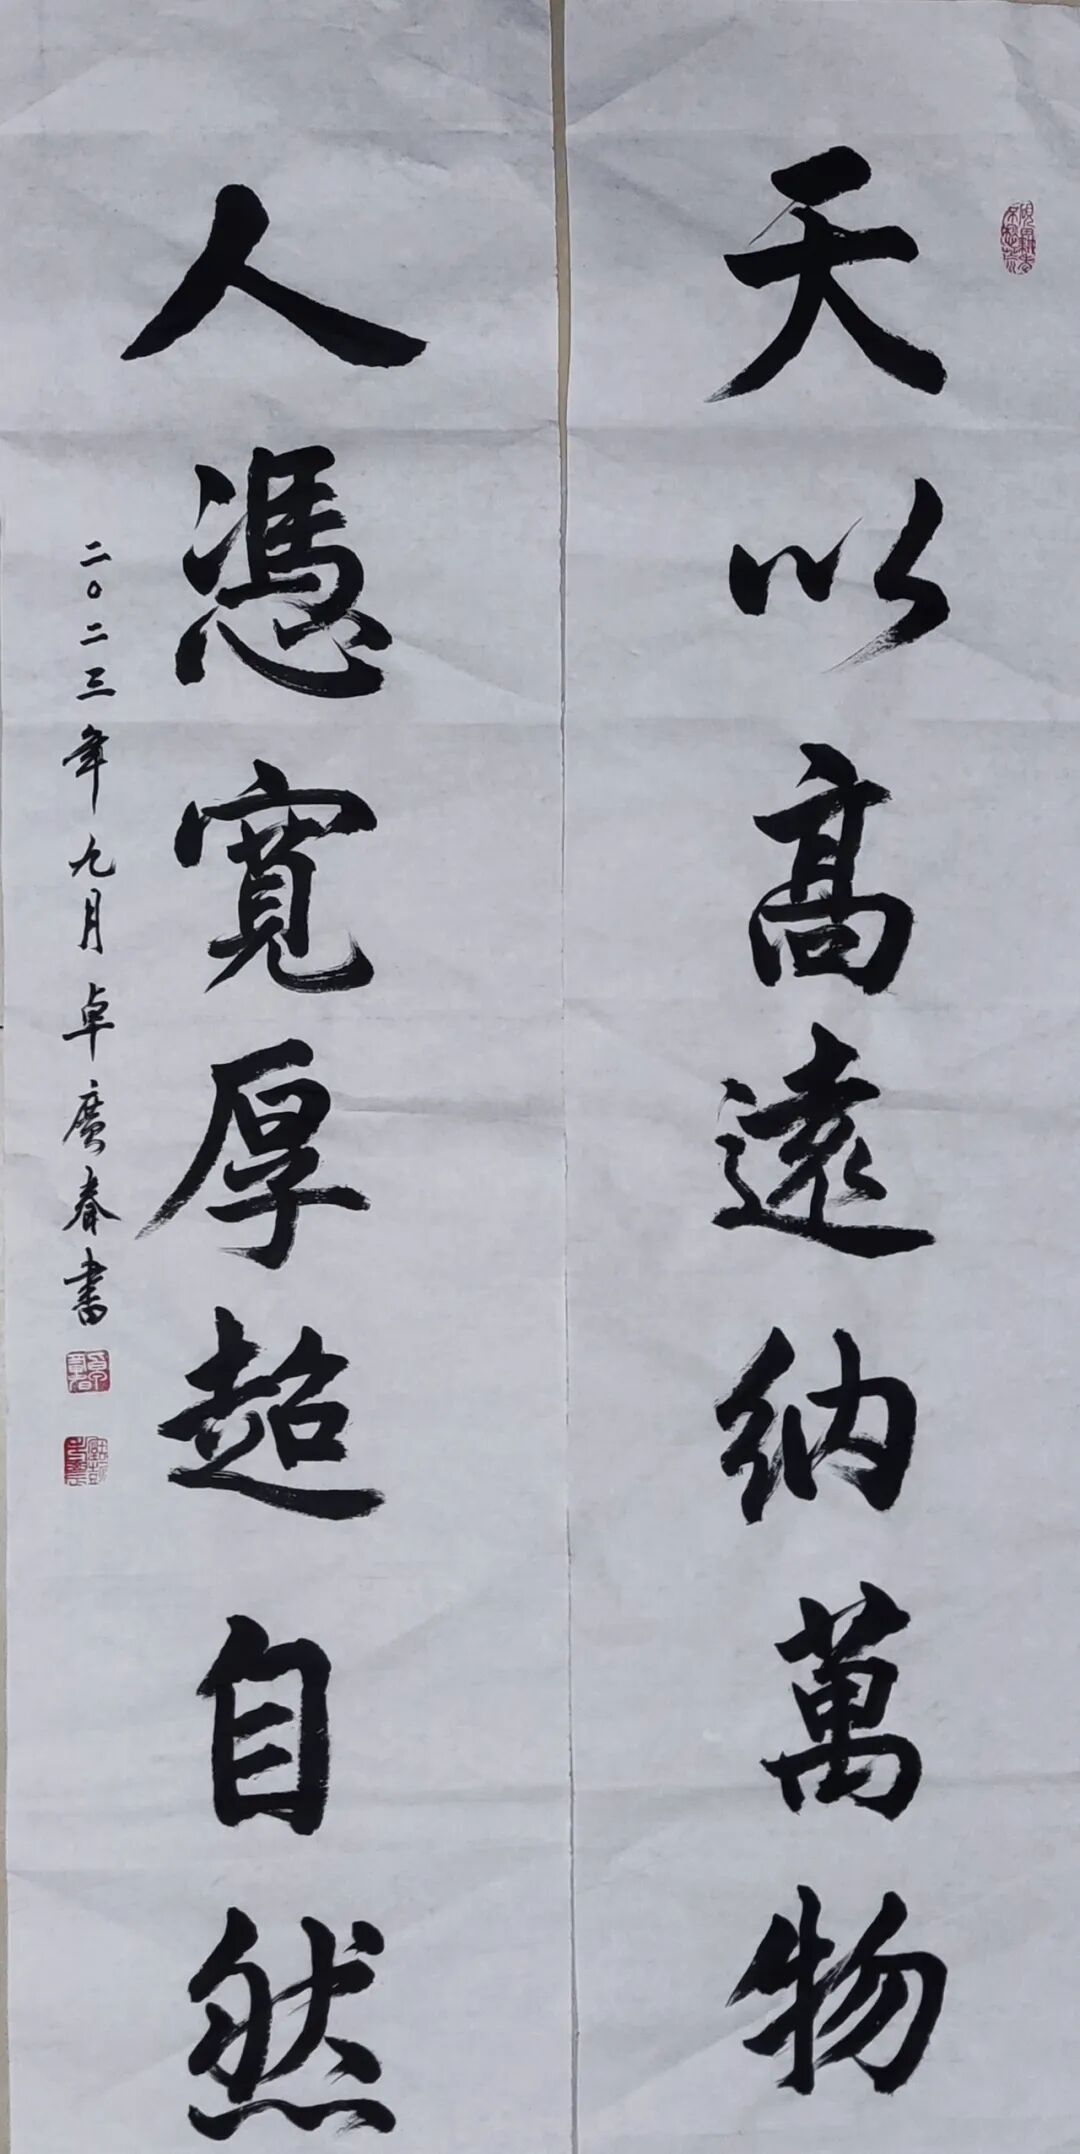 天以高遠納萬物
人憑寬厚超自然
二〇二三年九月卓廣春書